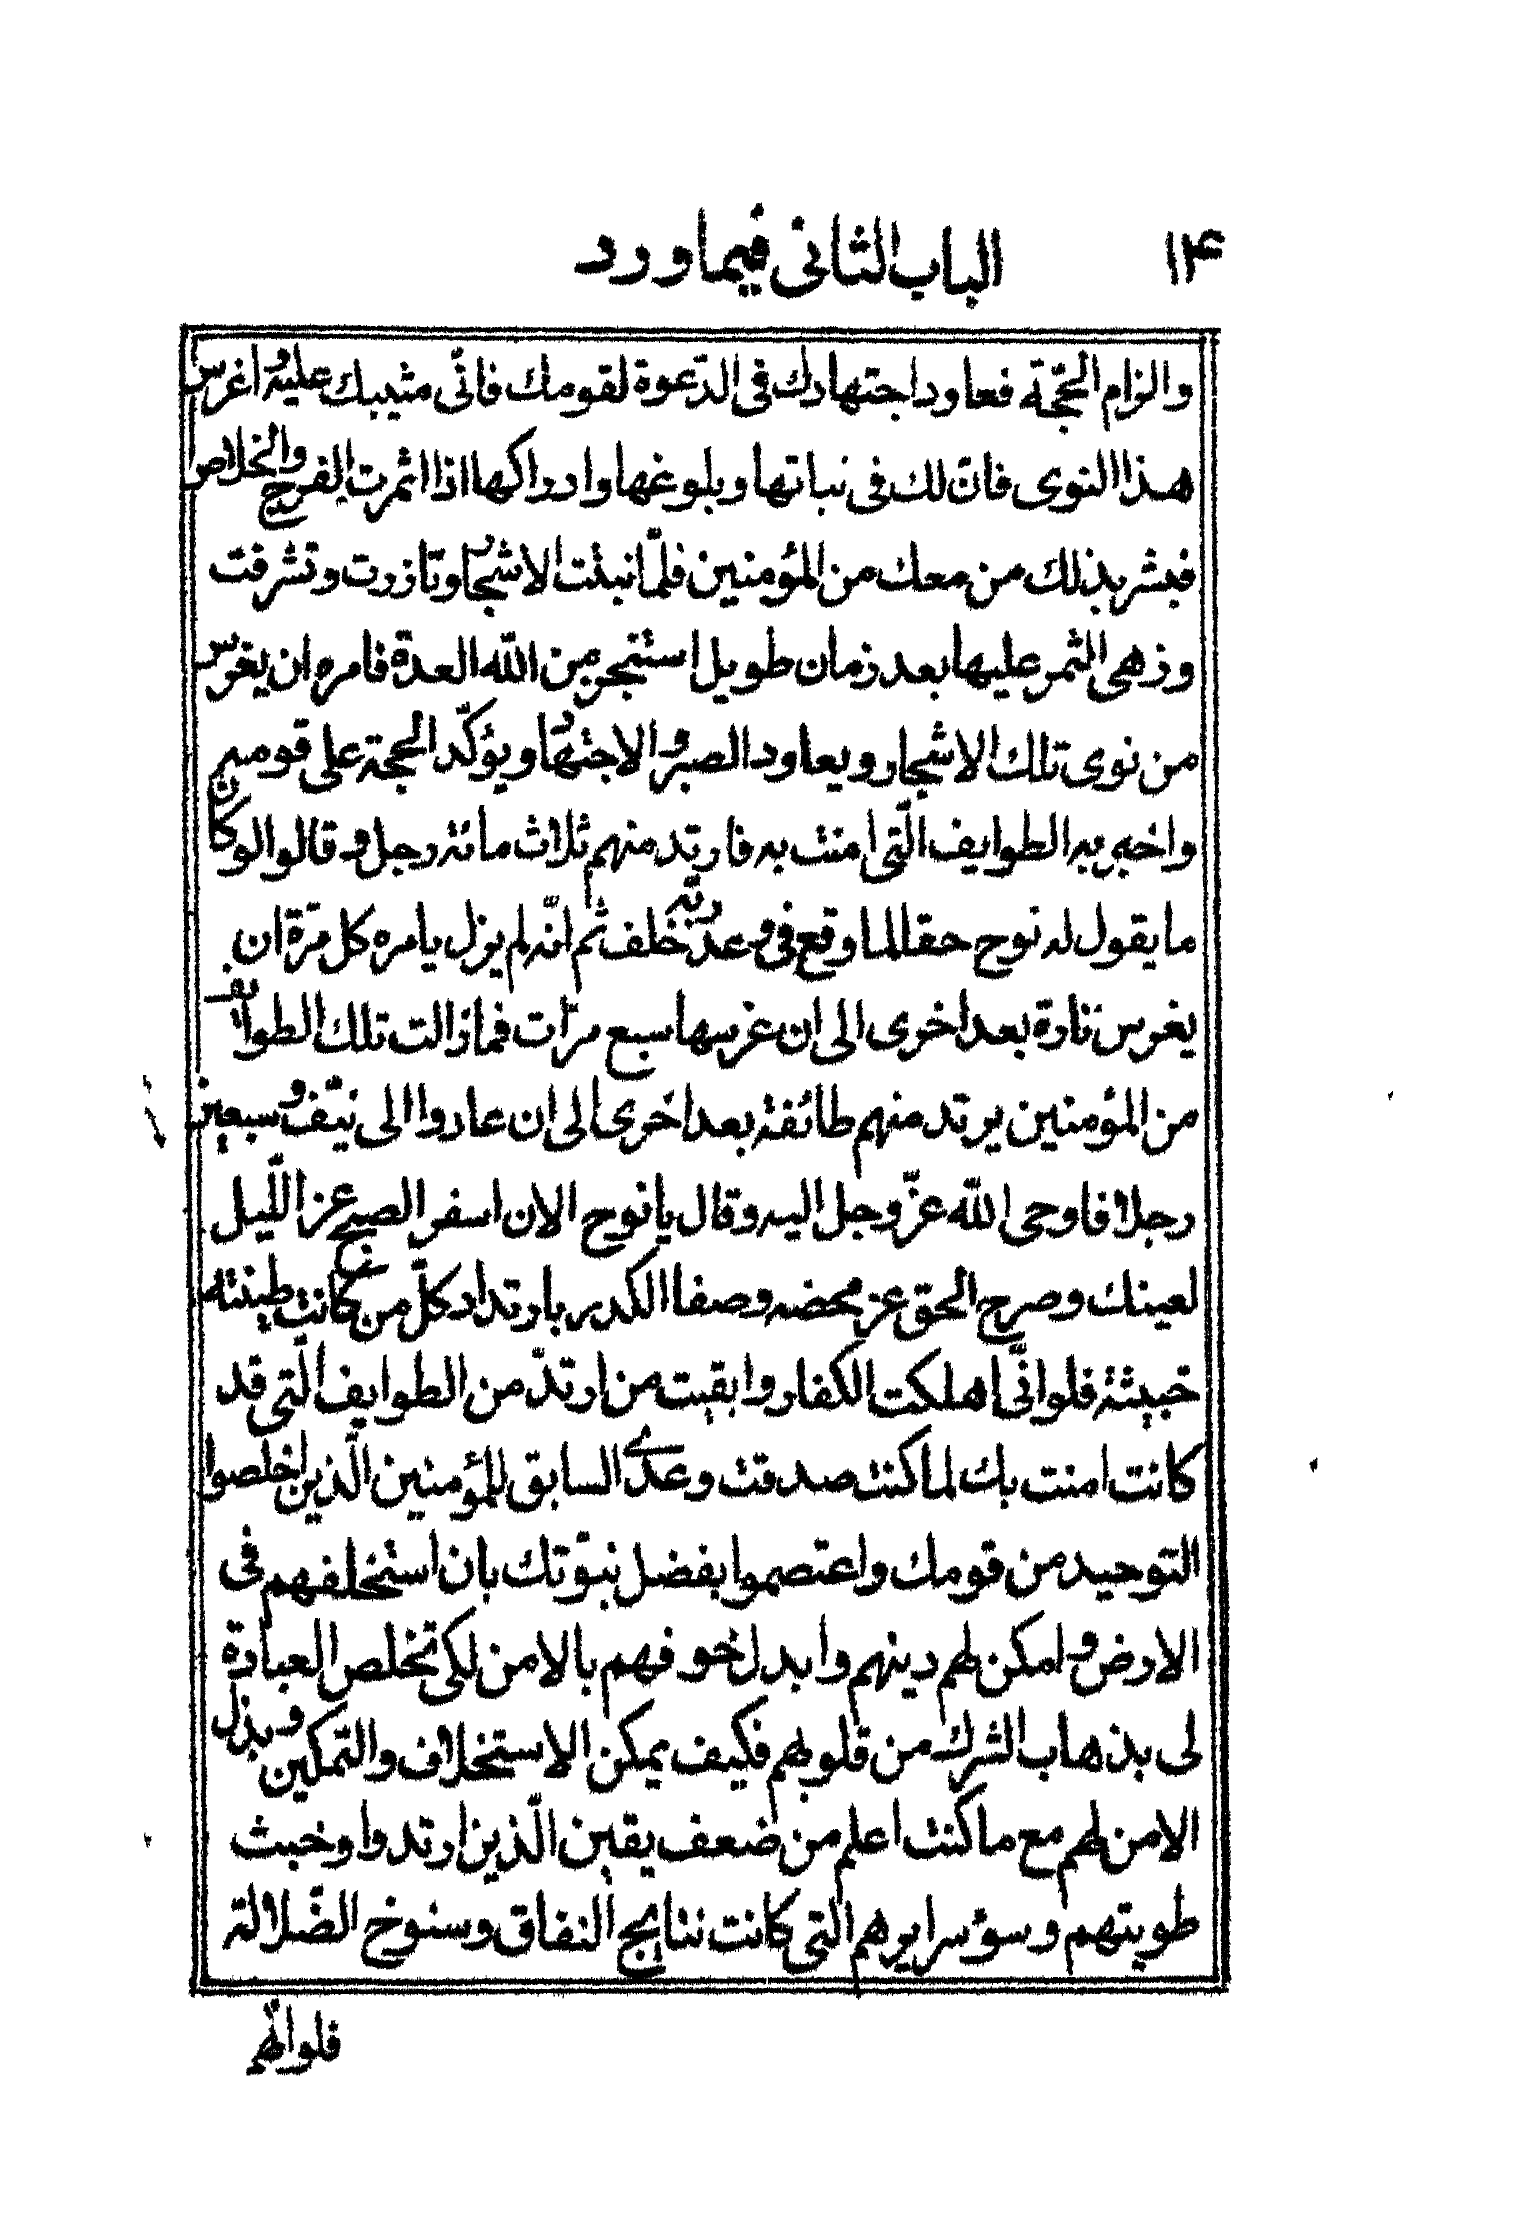 ۱۴ الباب الثانى فيما ورد
والزام الحجّة فعاود اجتهادك فى الدّعوة لقومك فانّى مثيبك عليه و اغرس
هذا النوى فانّ لك فى نباتها وبلوغها وادراكها اذا اثمرت الفرج والخلاص
فبشر بذلك من معك من المؤمنين فلمّا نبتت الاشجار وتازرت وتشرفت
وزهى الثمر عليها بعد زمان طويل استنجز من اللّه العدة فامره ان يغرس
من نوى تلك الاشجار ويعاود الصبر و الاجتهاد ويؤكّد الحجة على قومه
واخبر به الطوايف الّتى امنت به فارتد منهم ثلاث مائة رجل و قالوا لو كان
ما يقول له نوح حقا لما وقع فى وعد ربّه خلف ثم انّه لم يزل يامره كل مرّة ان
يغرس تارة بعد اخرى الى ان غرسها سبع مرّات فما زالت تلك الطوايف
من المؤمنين يرتد منهم طائفة بعد اخرى الى ان عادوا الى نيّف و سبعين
رجلا فاوحى اللّه عزّ وجل اليه وقال يا نوح الان اسفر الصبح عز اللّيل
لعينك وصرح الحق عز محضه وصفا الكدر بارتداد كلّ من كانت طينته
خبيثة فلو انّى اهلكت الكفار وابقيت من ارتدّ من الطوايف الّتى قد
كانت امنت بك لما كنت صدقت وعدى السابق للمؤمنين الّذين اخلصوا
التوحيد من قومك واعتصموا بفضل نبوّتك بان استخلفهم فى
الارض و امكن لهم دينهم وابدل خوفهم بالامن لكى تخلص العبادة
لى بذهاب الشرك من قلوبهم فكيف يمكن الاستخلاف والتمكين و بذل
الامن لهم مع ما كنت اعلم من ضعف يقين الّذين ارتدوا وخبث
طويتهم وسؤ سرايرهم التى كانت نتايج النفاق وسنوخ الضّلالة
فلو انّهم